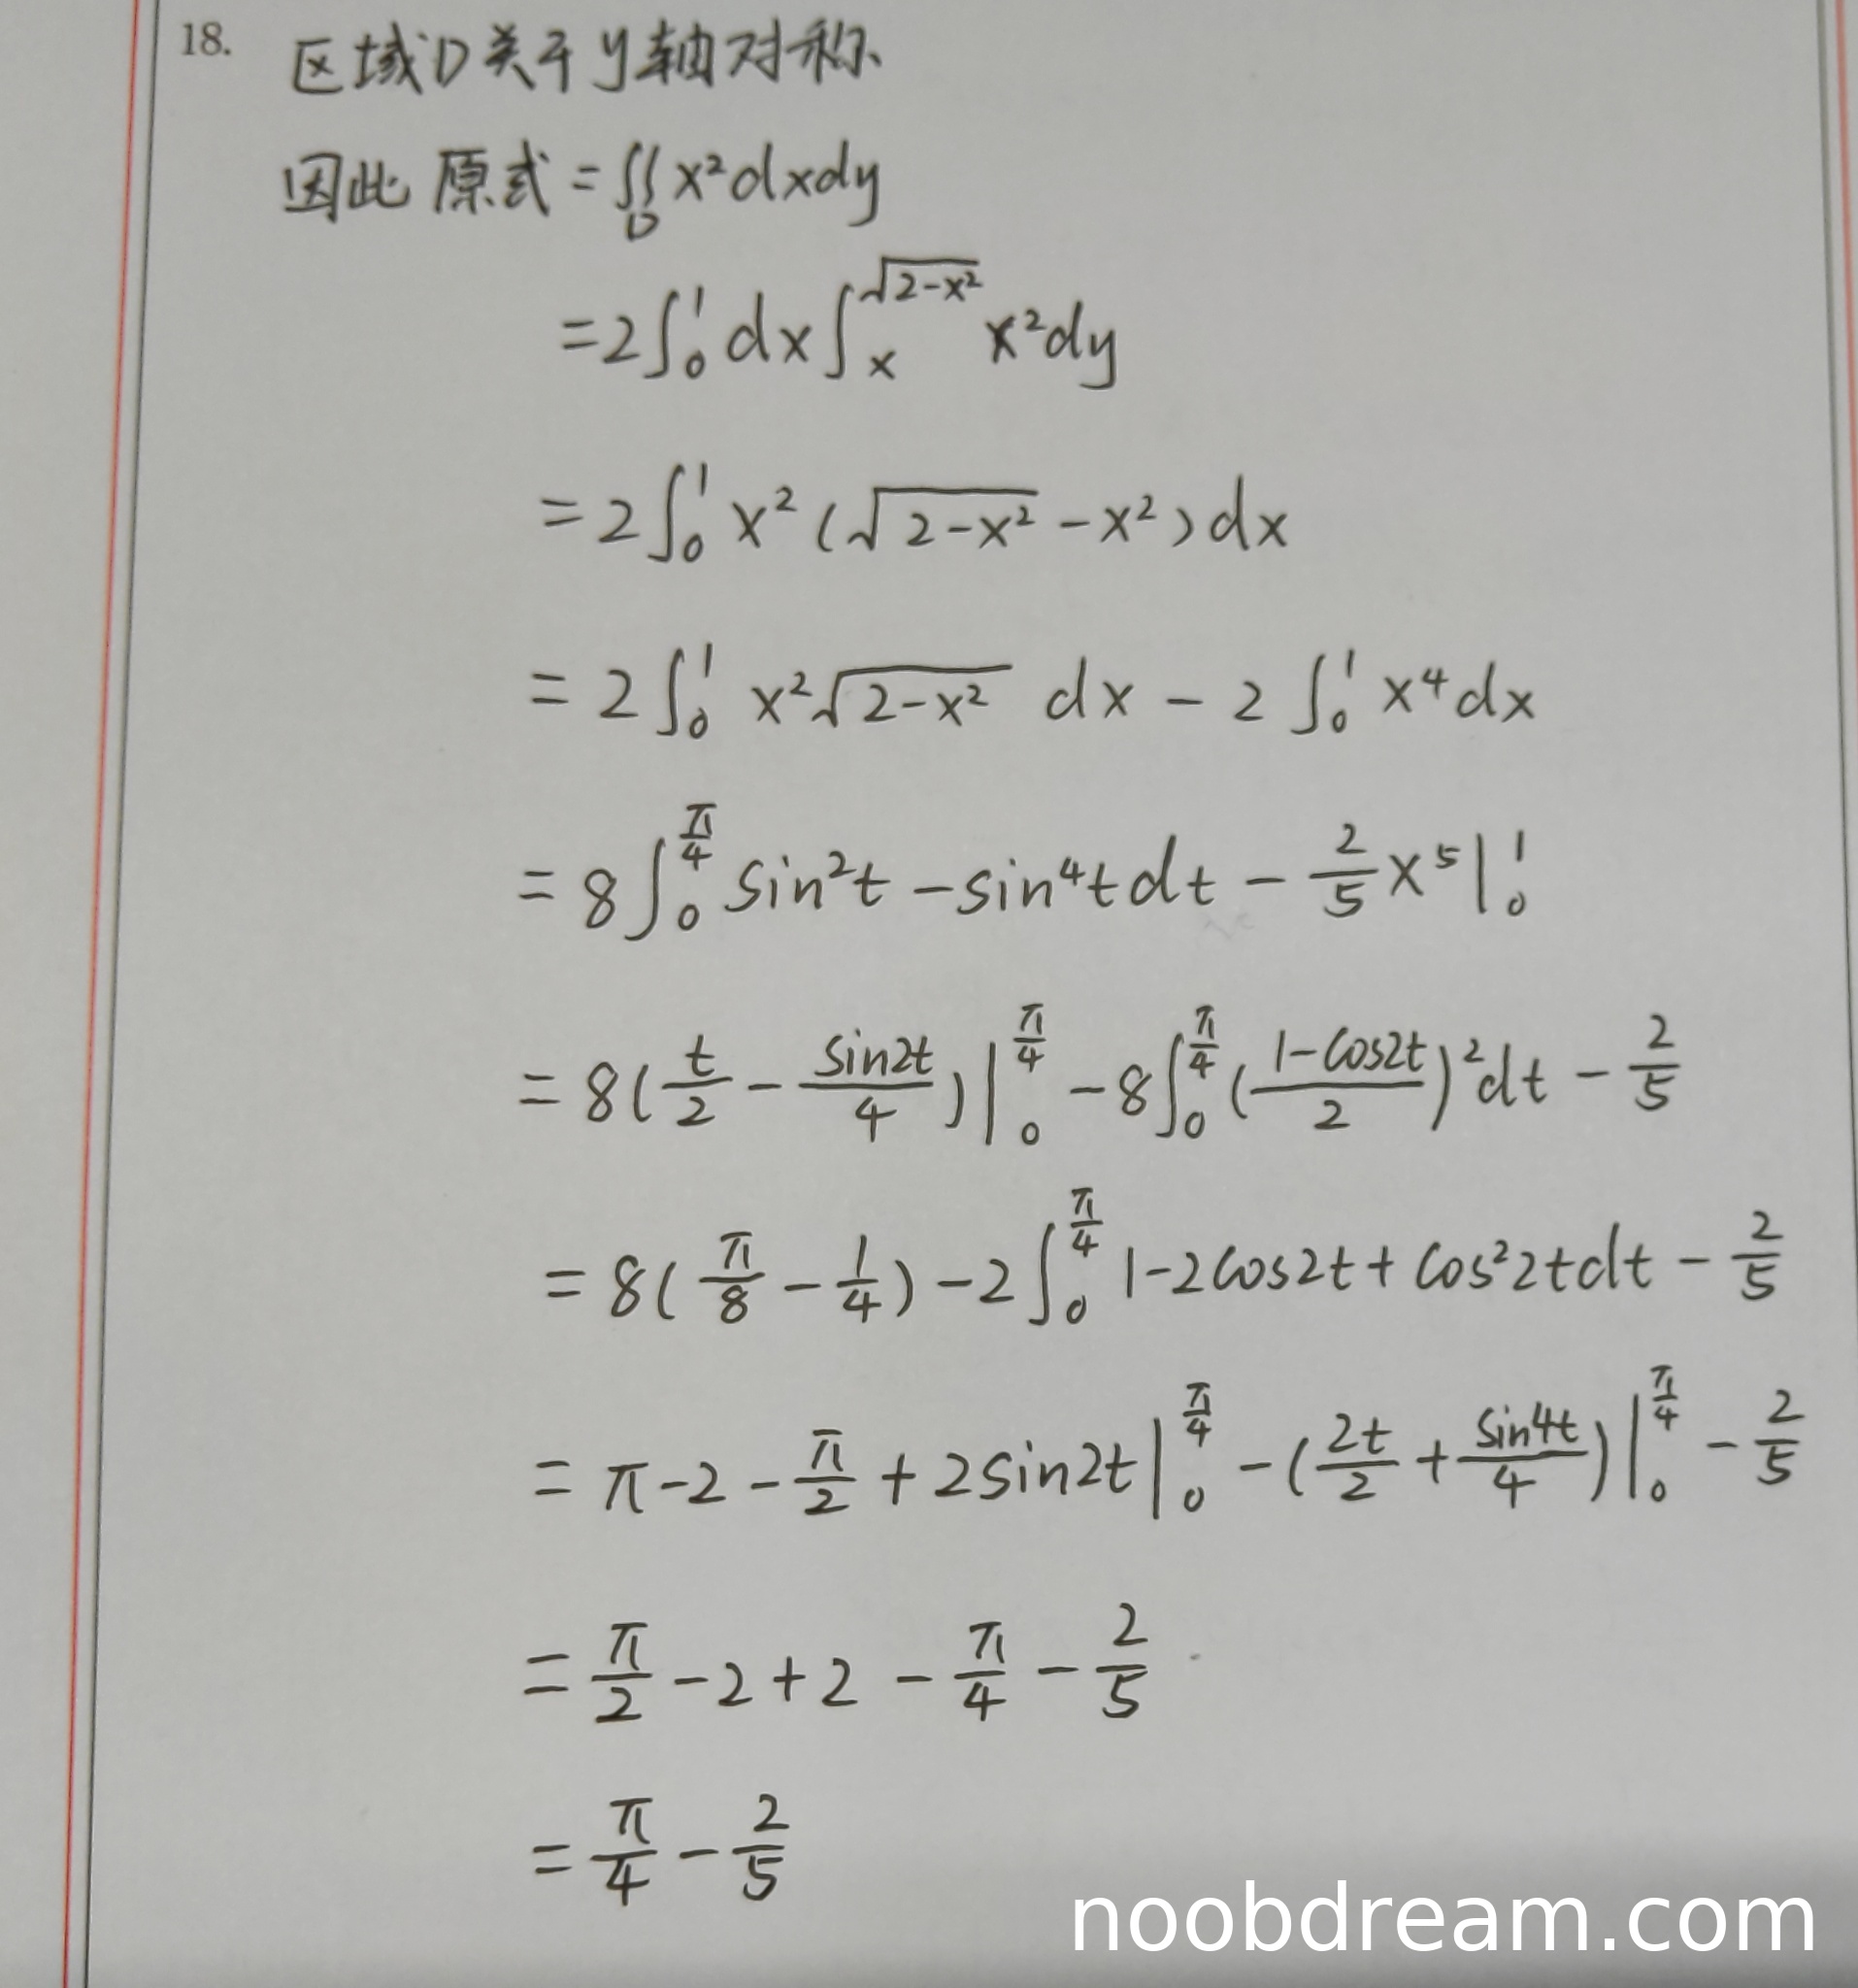 18. 区域D关于y轴对称
因此 原式 = ∬_D x²dxdy
= 2∫₀¹ dx ∫_x^{√(2-x²)} x²dy
= 2∫₀¹ x² (√(2-x²) - x²) dx
= 2∫₀¹ x²√(2-x²) dx - 2∫₀¹ x⁴dx
= 8∫₀^{π/4} sin²t - sin⁴t dt - 2/5 x⁵|₀¹
= 8(t/2 - sin2t/4)|₀^{π/4} - 8∫₀^{π/4} ((1-cos2t)/2)² dt - 2/5
= 8(π/8 - 1/4) - 2∫₀^{π/4} 1-2cos2t + cos²2t dt - 2/5
= π - 2 - π/2 + 2sin2t|₀^{π/4} - (2t/2 + sin4t/4)|₀^{π/4} - 2/5
= π/2 - 2 + 2 - π/4 - 2/5
= π/4 - 2/5
noobdream.com